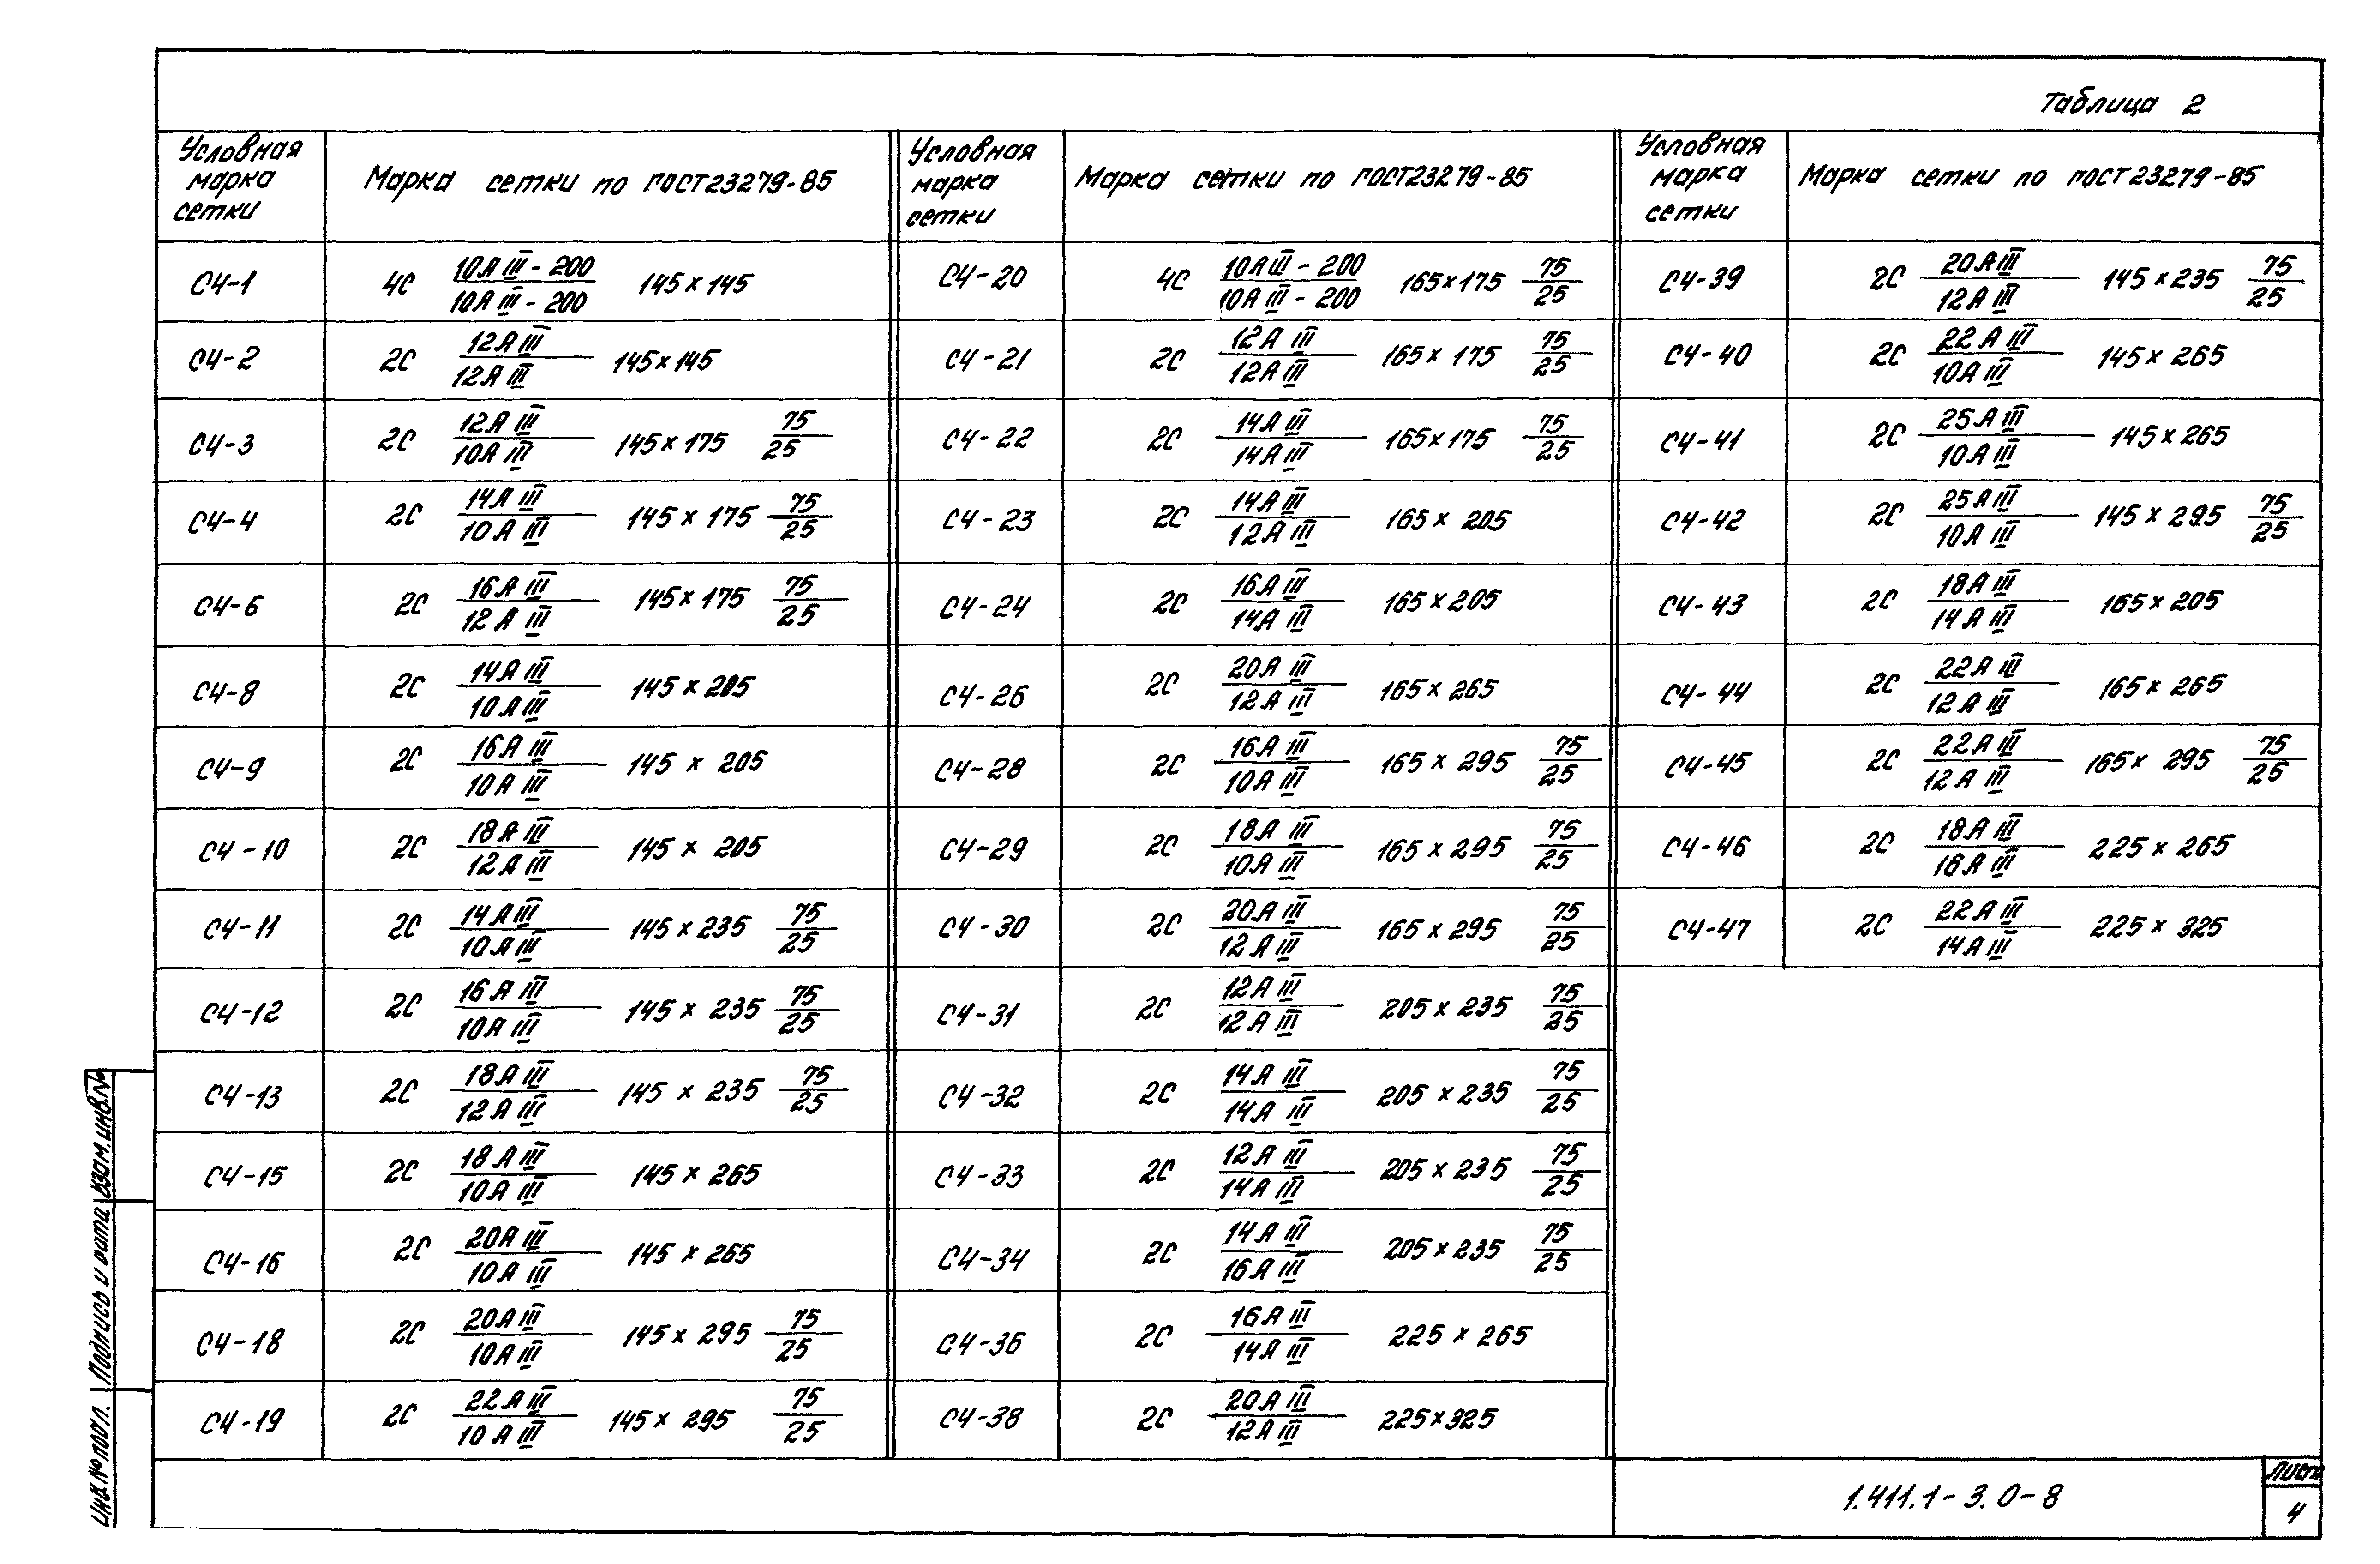 Таблица 2
Условная марка сетки | Марка сетки по ГОСТ 23279-85 | Условная марка сетки | Марка сетки по ГОСТ 23279-85 | Условная марка сетки | Марка сетки по ГОСТ 23279-85
С4-1 | 4С 10АIII-200/10АIII-200 145×145 | С4-20 | 4С 10АIII-200/10АIII-200 165×175 75/25 | С4-39 | 2С 20АIII/12АIII 145×235 75/25
С4-2 | 2С 12АIII/12АIII 145×145 | С4-21 | 2С 12АIII/12АIII 165×175 75/25 | С4-40 | 2С 22АIII/10АIII 145×265
С4-3 | 2С 12АIII/10АIII 145×175 75/25 | С4-22 | 2С 14АIII/14АIII 165×175 75/25 | С4-41 | 2С 25АIII/10АIII 145×265
С4-4 | 2С 14АIII/10АIII 145×175 75/25 | С4-23 | 2С 14АIII/12АIII 165×205 | С4-42 | 2С 25АIII/10АIII 145×295 75/25
С4-6 | 2С 16АIII/12АIII 145×175 75/25 | С4-24 | 2С 16АIII/14АIII 165×205 | С4-43 | 2С 18АIII/14АIII 165×205
С4-8 | 2С 14АIII/10АIII 145×205 | С4-26 | 2С 20АIII/12АIII 165×265 | С4-44 | 2С 22АIII/12АIII 165×265
С4-9 | 2С 16АIII/10АIII 145×205 | С4-28 | 2С 16АIII/10АIII 165×295 75/25 | С4-45 | 2С 22АIII/12АIII 165×295 75/25
С4-10 | 2С 18АIII/12АIII 145×205 | С4-29 | 2С 18АIII/10АIII 165×295 75/25 | С4-46 | 2С 18АIII/16АIII 225×265
С4-11 | 2С 14АIII/10АIII 145×235 75/25 | С4-30 | 2С 20АIII/12АIII 165×295 75/25 | С4-47 | 2С 22АIII/14АIII 225×325
С4-12 | 2С 16АIII/10АIII 145×235 75/25 | С4-31 | 2С 12АIII/12АIII 205×235 75/25
С4-13 | 2С 18АIII/12АIII 145×235 75/25 | С4-32 | 2С 14АIII/14АIII 205×235 75/25
С4-15 | 2С 18АIII/10АIII 145×265 | С4-33 | 2С 12АIII/14АIII 205×235 75/25
С4-16 | 2С 20АIII/10АIII 145×265 | С4-34 | 2С 14АIII/16АIII 205×235 75/25
С4-18 | 2С 20АIII/10АIII 145×295 75/25 | С4-36 | 2С 16АIII/14АIII 225×265
С4-19 | 2С 22АIII/10АIII 145×295 75/25 | С4-38 | 2С 20АIII/12АIII 225×325
Инв.№ подл. Подпись и дата Взам.инв.№
1.411.1-3.0-8
Лист
4